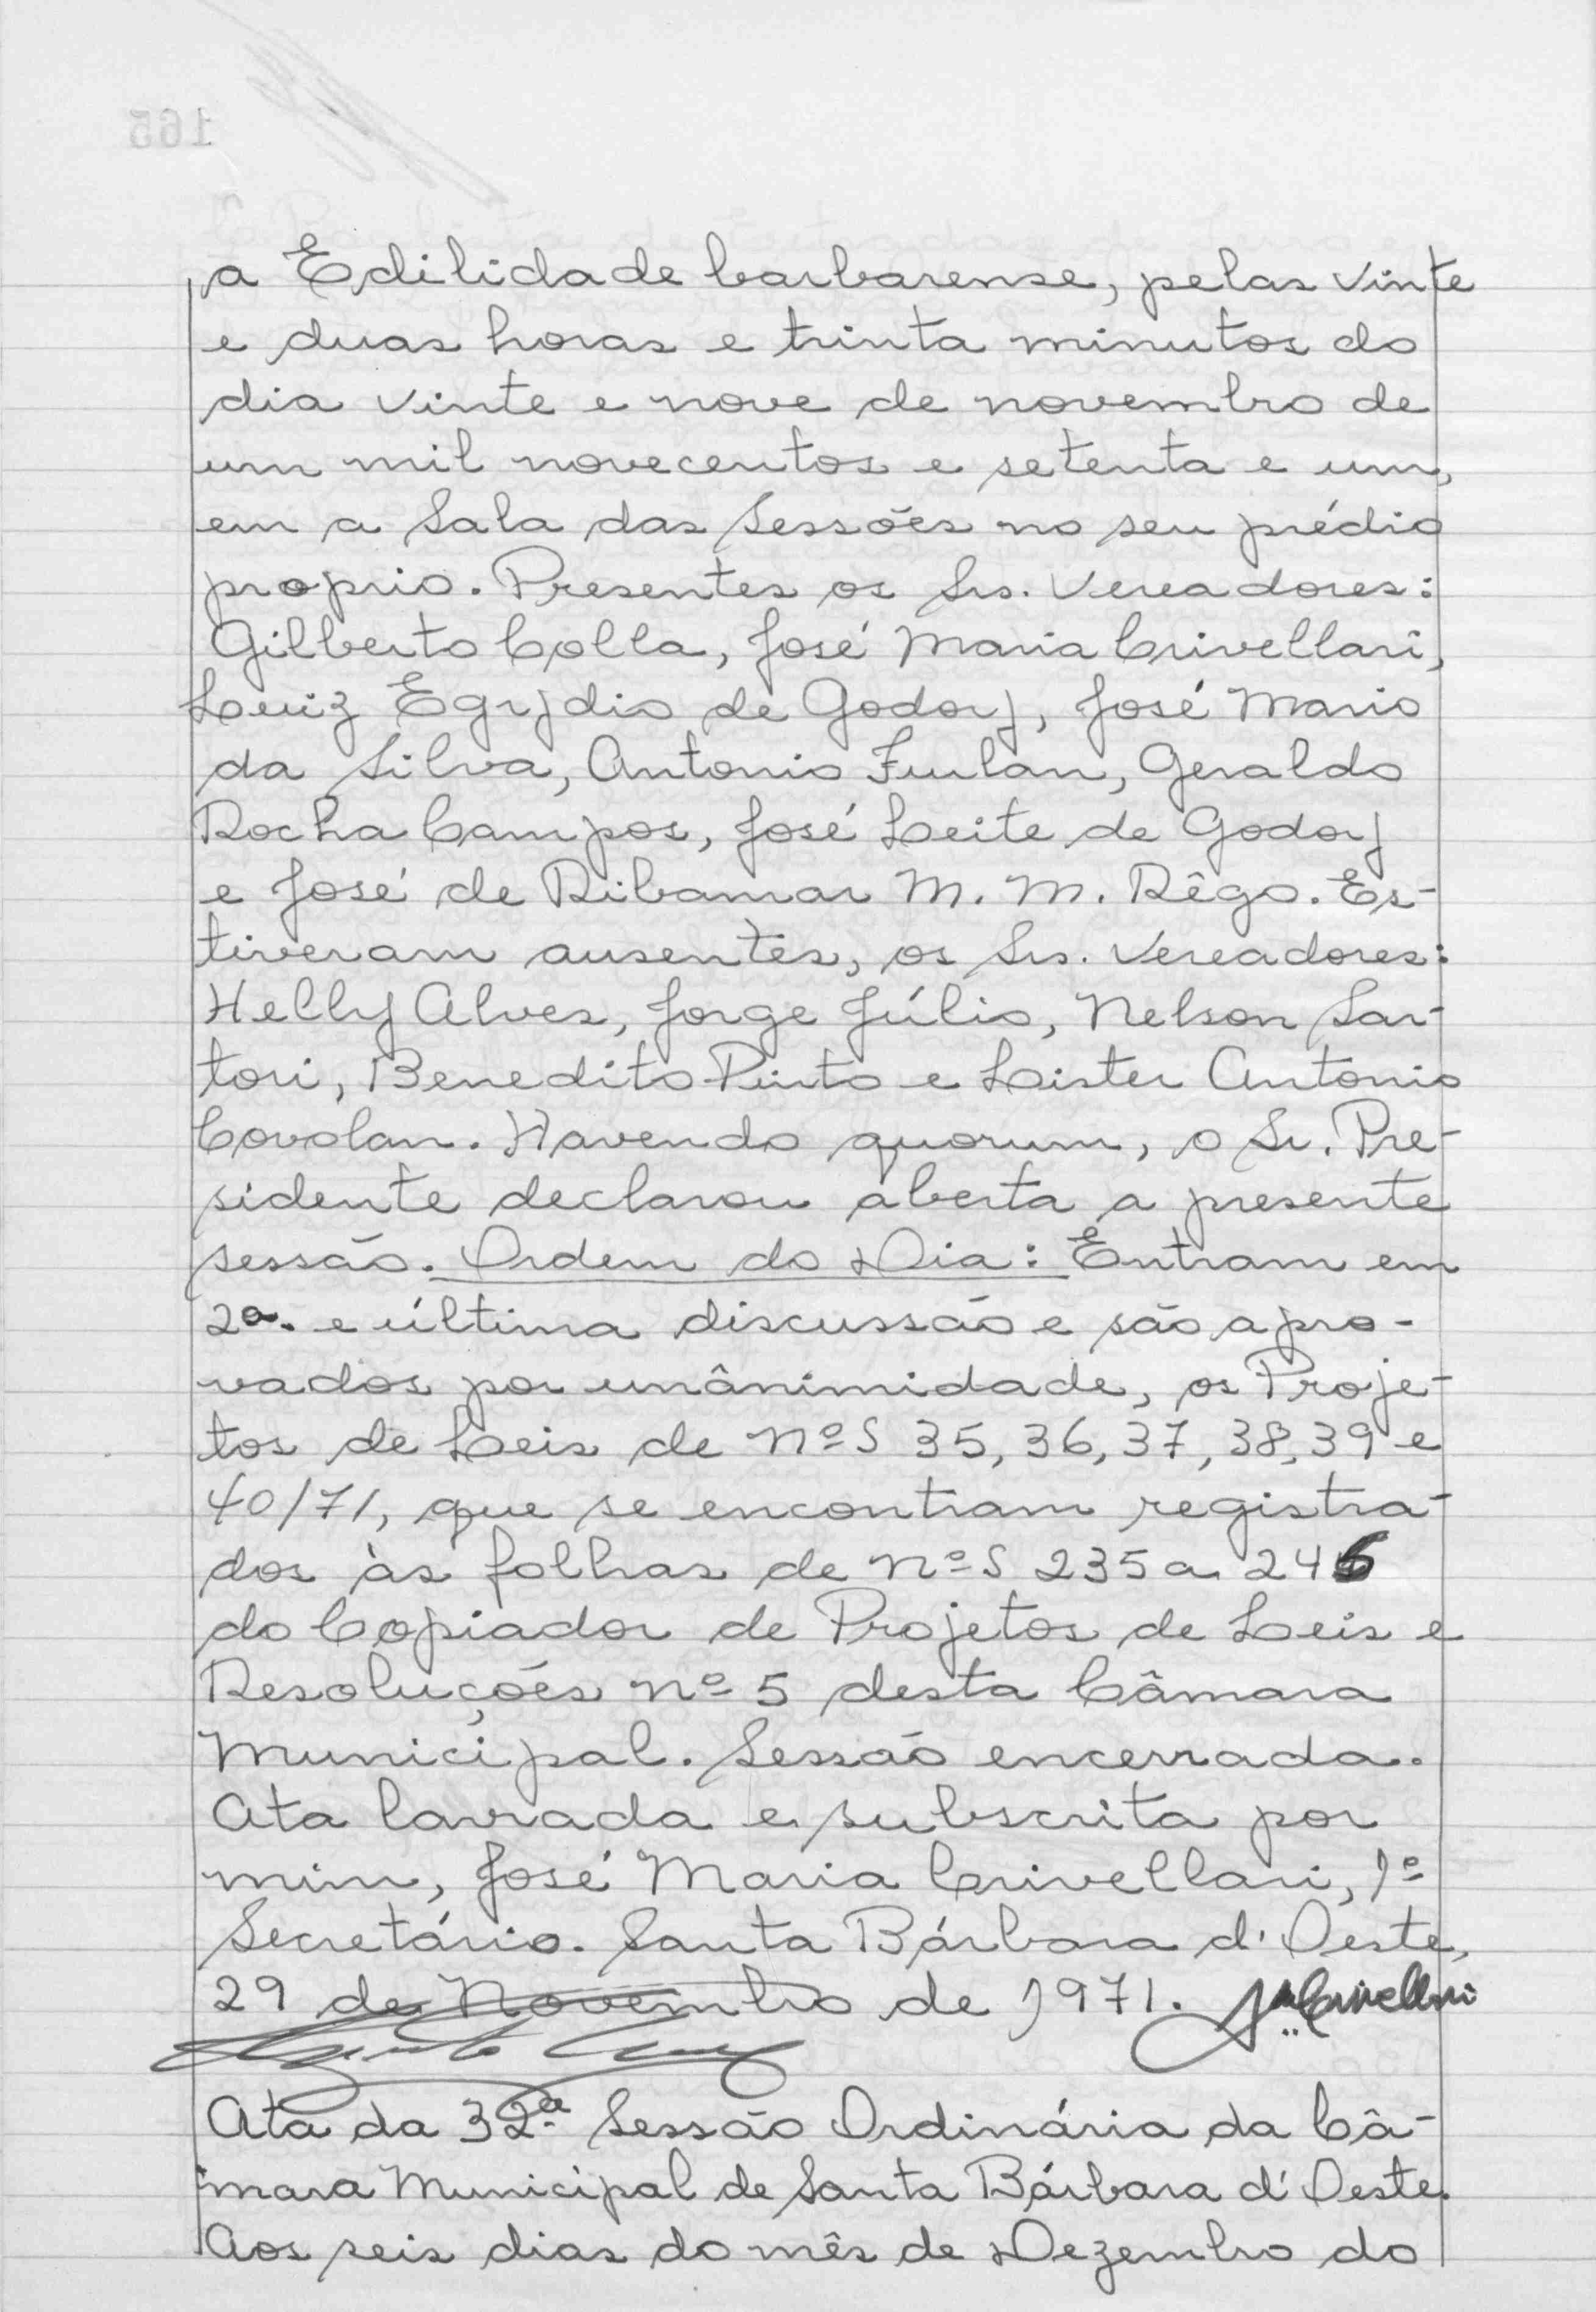 a Edilidade barbarense, pelas vinte
e duas horas e trinta minutos do
dia vinte e nove de novembro de
um mil novecentos e setenta e um,
em a Sala das Sessões no seu prédio
proprio. Presentes os Srs. Vereadores:
Gilberto Colla, José Maria Crivellari,
Luiz Egydio de Godoy, José Mario
da Silva, Antonio Furlan, Geraldo
Rocha Campos, José Leite de Godoy
e José de Ribamar M. M. Rêgo. Es-
tiveram ausentes, os Srs. Vereadores:
Helly Alves, Jorge Júlio, Nelson Sar-
tori, Benedito Pinto e Lister Antonio
Covolan. Havendo quorum, o Sr. Pre-
sidente declarou aberta a presente
sessão. Ordem do Dia: Entram em
2a. e última discussão e são apro-
vados por unânimidade, os Proje-
tos de Leis de Nºs 35, 36, 37, 38, 39 e
40/71, que se encontram registra-
dos às folhas de nºs 235 a 246
do Copiador de Projetos de Leis e
Resoluções nº 5 desta Câmara
Municipal. Sessão encerrada.
Ata lavrada e subscrita por
mim, José Maria Crivellari, 1º
Secretário. Santa Bárbara d'Oeste,
29 de Novembro de 1971. JMCrivellari
Ata da 32ª Sessão Ordinária da Câ-
mara Municipal de Santa Bárbara d'Oeste.
Aos seis dias do mês de Dezembro do